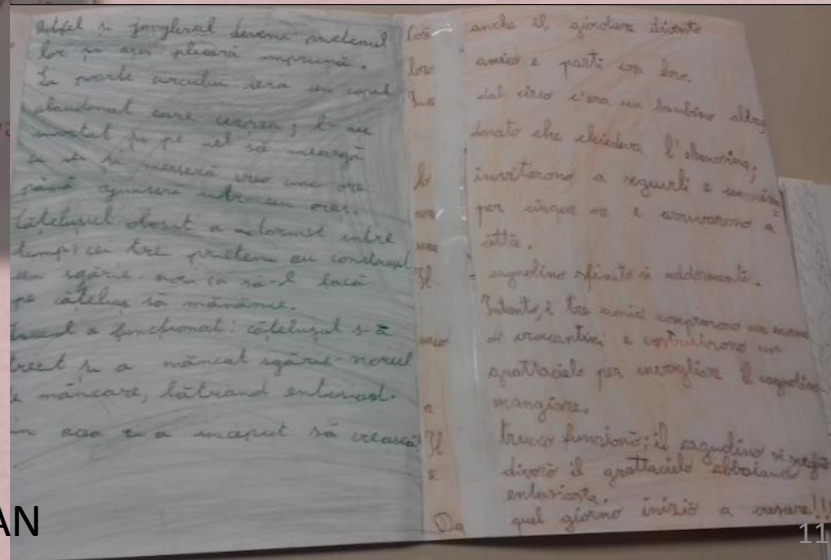 Astfel și jonglerul deveni prietenul
lor și așa plecară împreună.
La poarte circului era un copil
abandonat care cerșea; l-au
invitat și pe el să meargă
cu ei și merseră vreo cinci ore
până ajunseră intr-un oraș.
Cățelușul obosit a adormit intre
timp; cei tre prieteni au construit
un sgârie-nori ca să-l facă
pe cățeluș să mănânce.
Trucul a funcționat: cățelușul s-a
trezit și a mâncat sgârie-noriul
de mâncare, lătrand entusiast.
Din acea zi a inceput să crească!
Così anche il giocoliere diventò
loro amico e partì con loro.
Fuori dal circo c'era un bambino abban
donato che chiedeva l'elemosina;
lo invitarono a seguirli e camminarono
per cinque ore e arrivarono a
una città.
Il cagnolino sfinito si addormentò.
Intanto, i tre amici comprarono un
sacco di croccantini e costruirono un
grattacielo per invogliare il cagnolino
a mangiare.
Il trucco funzionò; il cagnolino si svegliò
e divorò il grattacielo abbaiando
entusiasta.
Da quel giorno iniziò a crescere!!!
AN
11